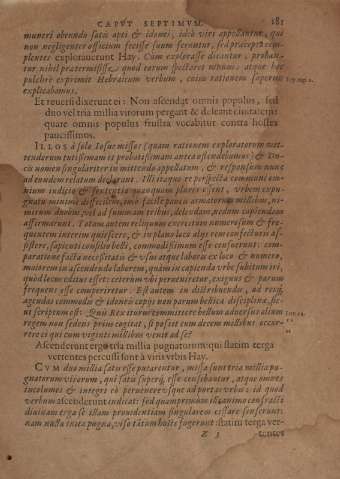 CAPUT SEPTIMUM. 181
muneri obeundo satis apti & idonei, ideò viri appellantur, qui
non negligenter officium fecisse suum feruntur, sed
plenter explorauerunt Hay. Cum explorasse dicantur, proban-
tur nihil prætermisisse, quod rerum
pulchrè exprimit Hebraicum verbum, cuius rationem superius
explicabamus.
Et reuersi dixerunt ei: Non ascendat omnis populus, sed
duo vel tria millia virorum pergant & deleant ciuitatem:
quare omnis populus frustra vocabitur contra hostes
paucissimos.
ILLOS à solo Iosue missos (quam rationem exploratorum mit-
tendorum tutissimam et probatissimam antea ostendebamus) & Du-
cis nomen singulariter in mittendo appellatum, & responsum nunc
ad eundem relatum declarant. Illi itaque re perspecta communi om-
nium iudicio & sententia quanquam plures essent, urbem expu-
gnatu minimè difficilem, imò facilè paucis armatorum millibus, ni-
mirum duobus, vel ad summum tribus, delendam, nedum capiendam
affirmarunt. Totum autem reliquum exercitum numerosum & fre-
quentem interim quiescere, & in plano loco
sistere, sapienti consilio belli, commodissimum esse censuerunt: com-
paratione facta necessitatis & usus atque laboris ex loco & numero,
maiorem in ascendendo laborem, quàm in capienda urbe subitum iri,
quòd locus editus esset: cæterum ubi perueniretur, exiguos & parum
frequentes esse comperiretur. Est autem in distribuendis, ad res
agendas commodis & idoneis copijs non parum bellica disciplina, si-
ut scriptum est: Quis Rex iturus committere bellum aduersus alium
regem non sedens prius cogitat, si possit cum decem millibus occur-
rere ei qui cum viginti millibus venit ad se?
Ascenderunt ergo tria millia pugnatorum, qui statim terga
vertentes percussi sunt à viris urbis Hay.
CVM duo millia satis esse putarentur, missa sunt tria millia pu-
gnatorum virorum, qui satis superque esse censebantur, atque omnes
incolumes & integri eò peruenere usque ad portas
verbum ascenderunt indicat: sed quamprimum
diuinam terga
nam nulla inita pugna, viso tantum hoste fugerunt statim terga ver-
Z 3